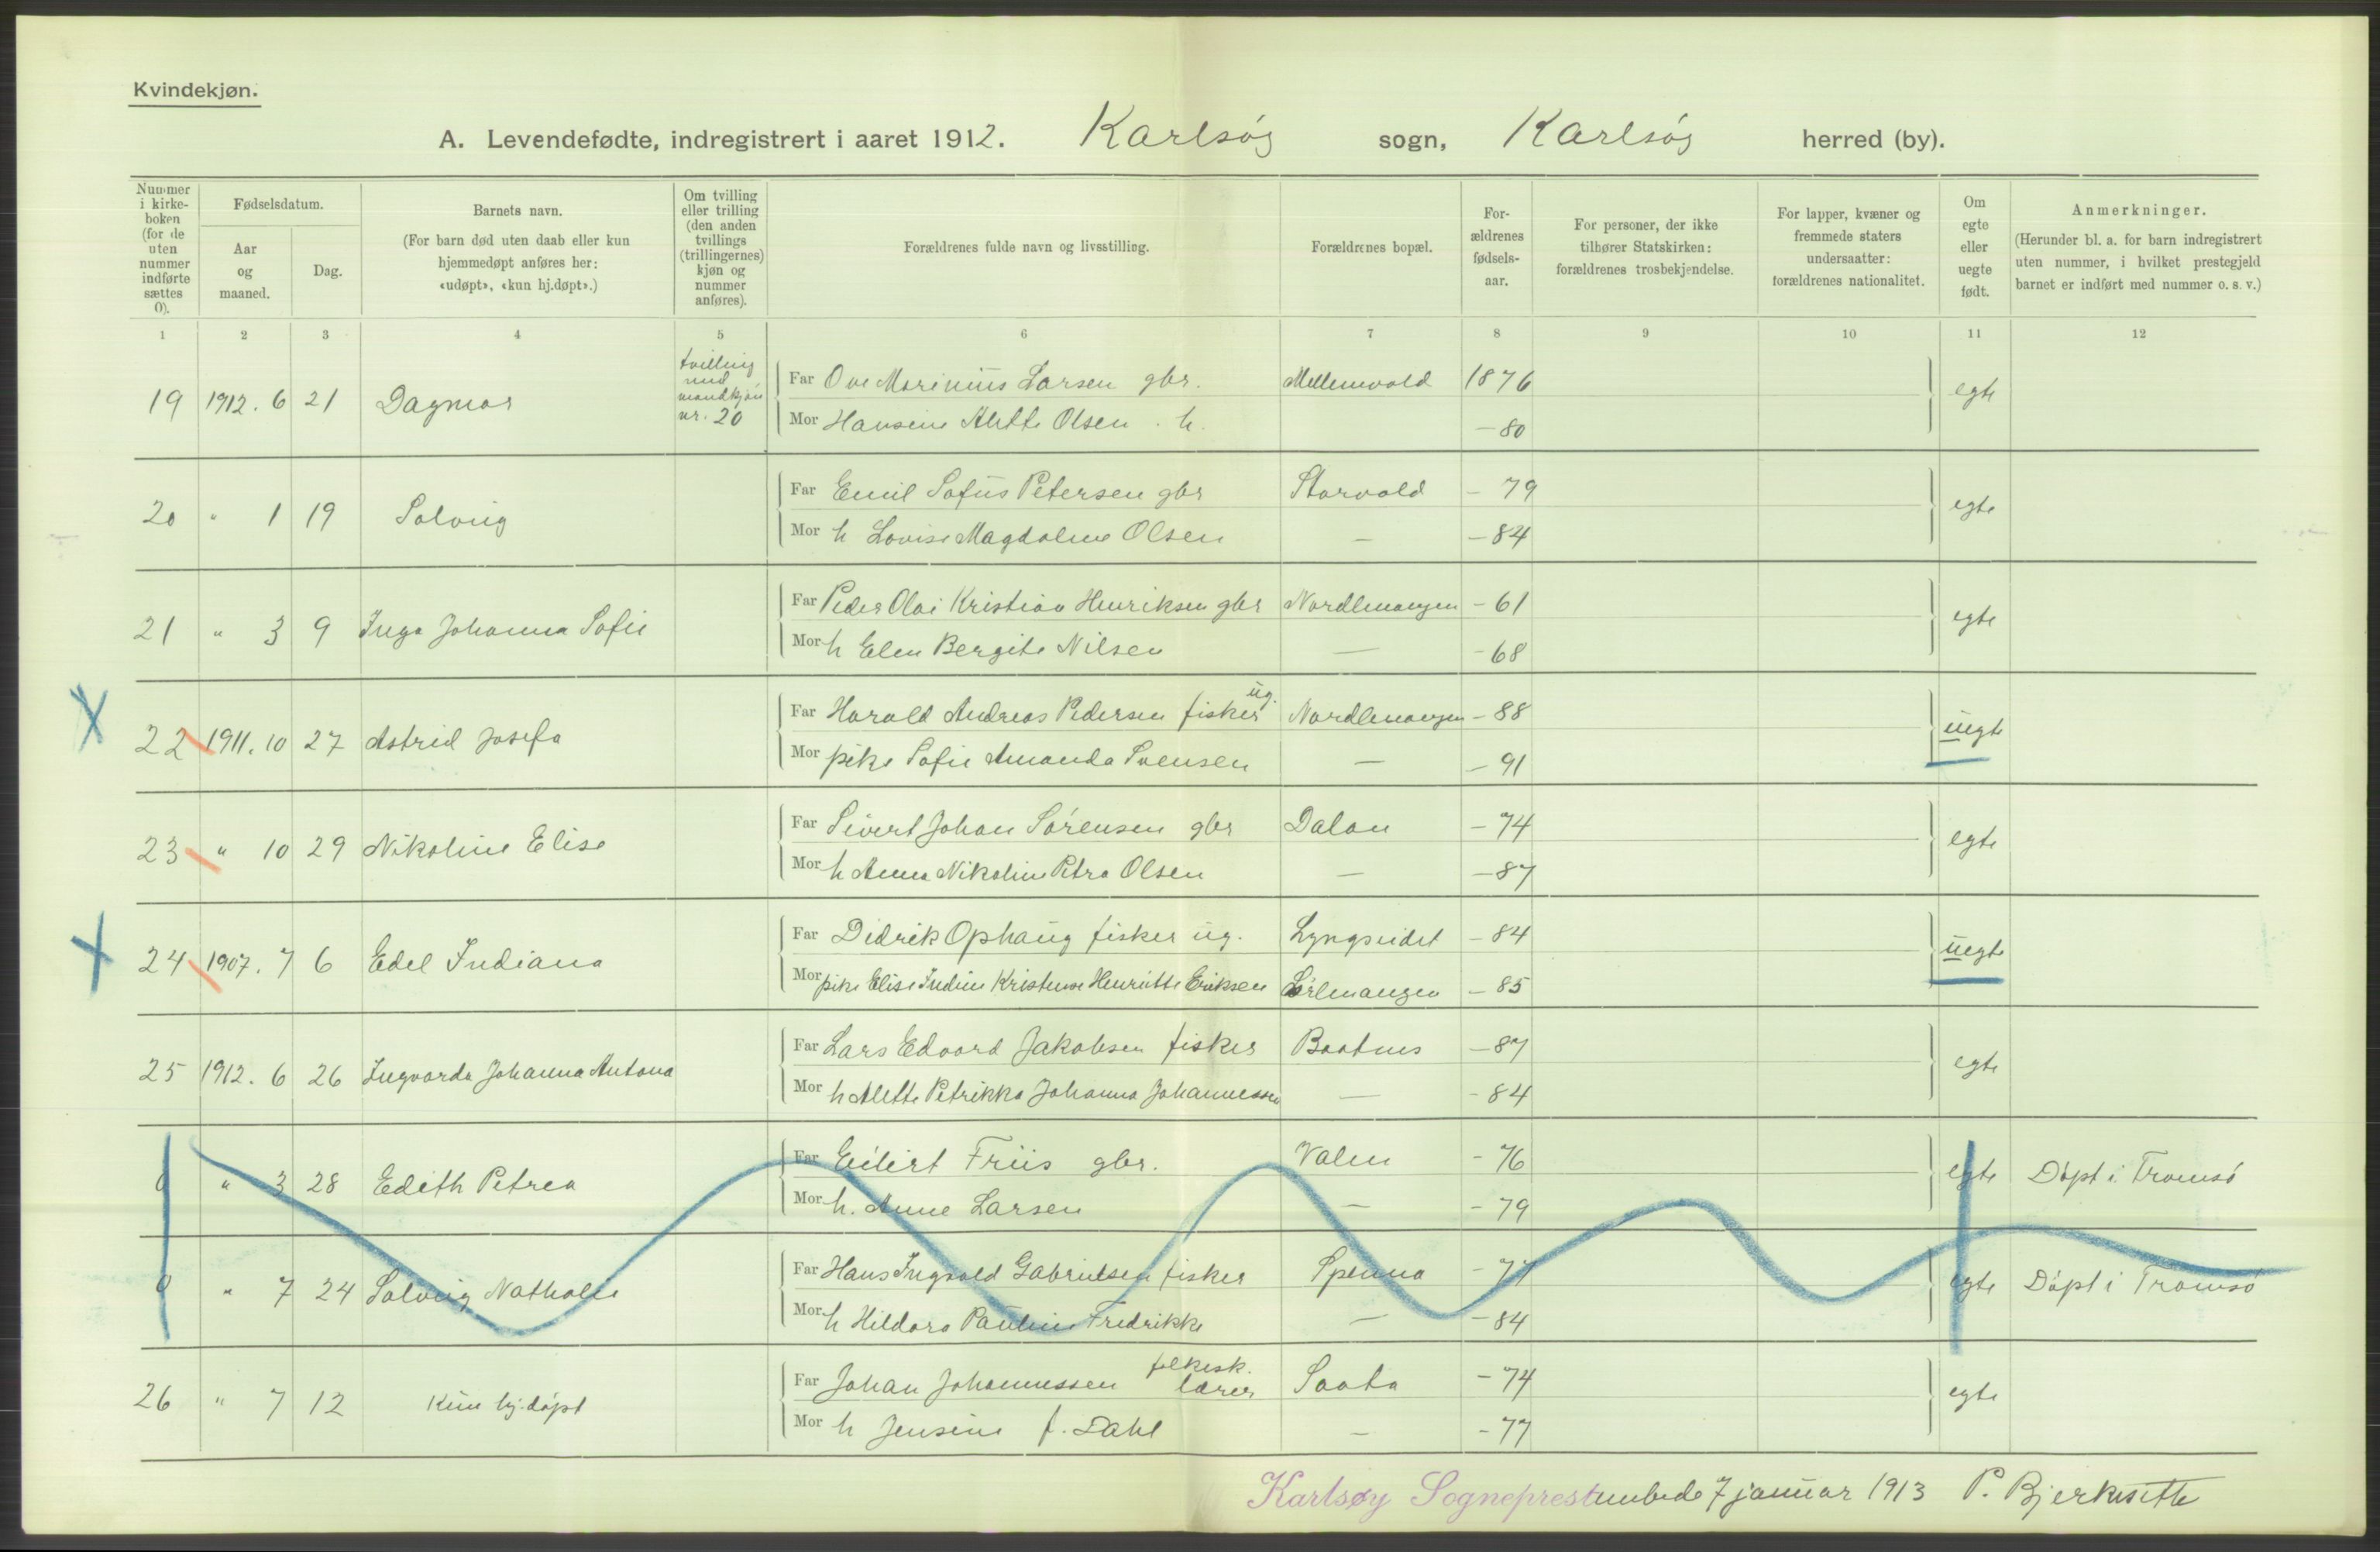 Kvindekjøn.
A. Levendefødte, indregistrert i aaret 1912. Karlsöy sogn, Karlsöy herred (by).
Nummer i kirke-boken (for de uten nummer indførte sættes 0).
Fødselsdatum.
Aar og maaned.
Dag.
Barnets navn.
(For barn død uten daab eller kun hjemmedøpt anføres her: «udøpt», «kun hj.døpt».)
Om tvilling eller trilling (den anden tvillings (trillingernes) kjøn og nummer anføres).
Forældrenes fulde navn og livsstilling.
Forældrenes bopæl.
For-ældrenes fødsels-aar.
For personer, der ikke tilhører Statskirken: forældrenes trosbekjendelse.
For lapper, kvæner og fremmede staters undersaatter: forældrenes nationalitet.
Om egte eller uegte født.
Anmerkninger.
(Herunder bl. a. for barn indregistrert uten nummer, i hvilket prestegjeld barnet er indført med nummer o. s. v.)
1 2 3 4 5 6 7 8 9 10 11 12
19 1912. 6 21 Dagmar tvilling med mandkjön nr. 20 Far Ove Marinius Larsen gbr. Mellemvold 1876 egte
Mor Hansine Alette Olsen . h. – 80
20 " 1 19 Solveig Far Emil Sofus Petersen gbr Storvold – 79 egte
Mor h Lovise Magdalene Olsen — – 84
21 " 3 9 Inga Johanna Sofie Far Peder Olai Kristian Henriksen gbr Nordlenangen – 61 egte
Mor h Elen Bergite Nilsen — – 68
22 1911. 10 27 Astrid Josefa Far Harald Andreas Pedersen fisker ug. Nordlenangen – 88 uegte
Mor pike Sofie Amanda Svensen — – 91
23 " 10 29 Nikoline Elise Far Sivert Johan Sörensen gbr Dalan – 74 egte
Mor h Anna Nikoline Petra Olsen — – 87
24 1907. 7 6 Edel Indiana Far Didrik Ophaug fisker ug. Lyngseidet – 84 uegte
Mor pike Elise Indine Kristense Henriette Eriksen Sörlenangen – 85
25 1912. 6 26 Ingvarda Johanna Antona Far Lars Edvard Jakobsen fisker Baatnes – 87 egte
Mor h Alette Petrikka Johanna Johannessen — – 84
0 " 3 28 Edith Petrea Far Eilert Friis gbr. Valen – 76 egte Döpt i Tromsö
Mor h. Anne Larsen — – 79
0 " 7 24 Solveig Nathalie Far Hans Ingvald Gabrielsen fisker Spenna – 77 egte Döpt i Tromsö
Mor h Hildora Pauline Fredrikke — – 84
26 " 7 12 Kun hj.döpt Far Johan Johannessen folkesk. lærer Saata – 74 egte
Mor h Jensine f. Dahl — – 77
Karlsøy Sogneprestembede 7 januar 1913 P. Bjerkesette